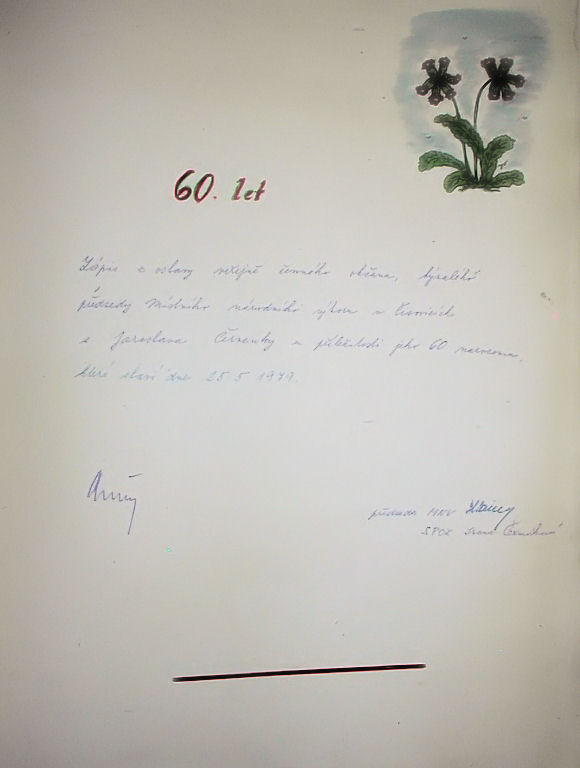 60. let
Zápis z oslavy veřejně činného občana, bývalého
předsedy Místního národního výboru v
s. Jaroslava Červenky u příležitosti jeho 60 narozenin,
které slaví dne 25 5 1979.
předseda MNV
SPOZ